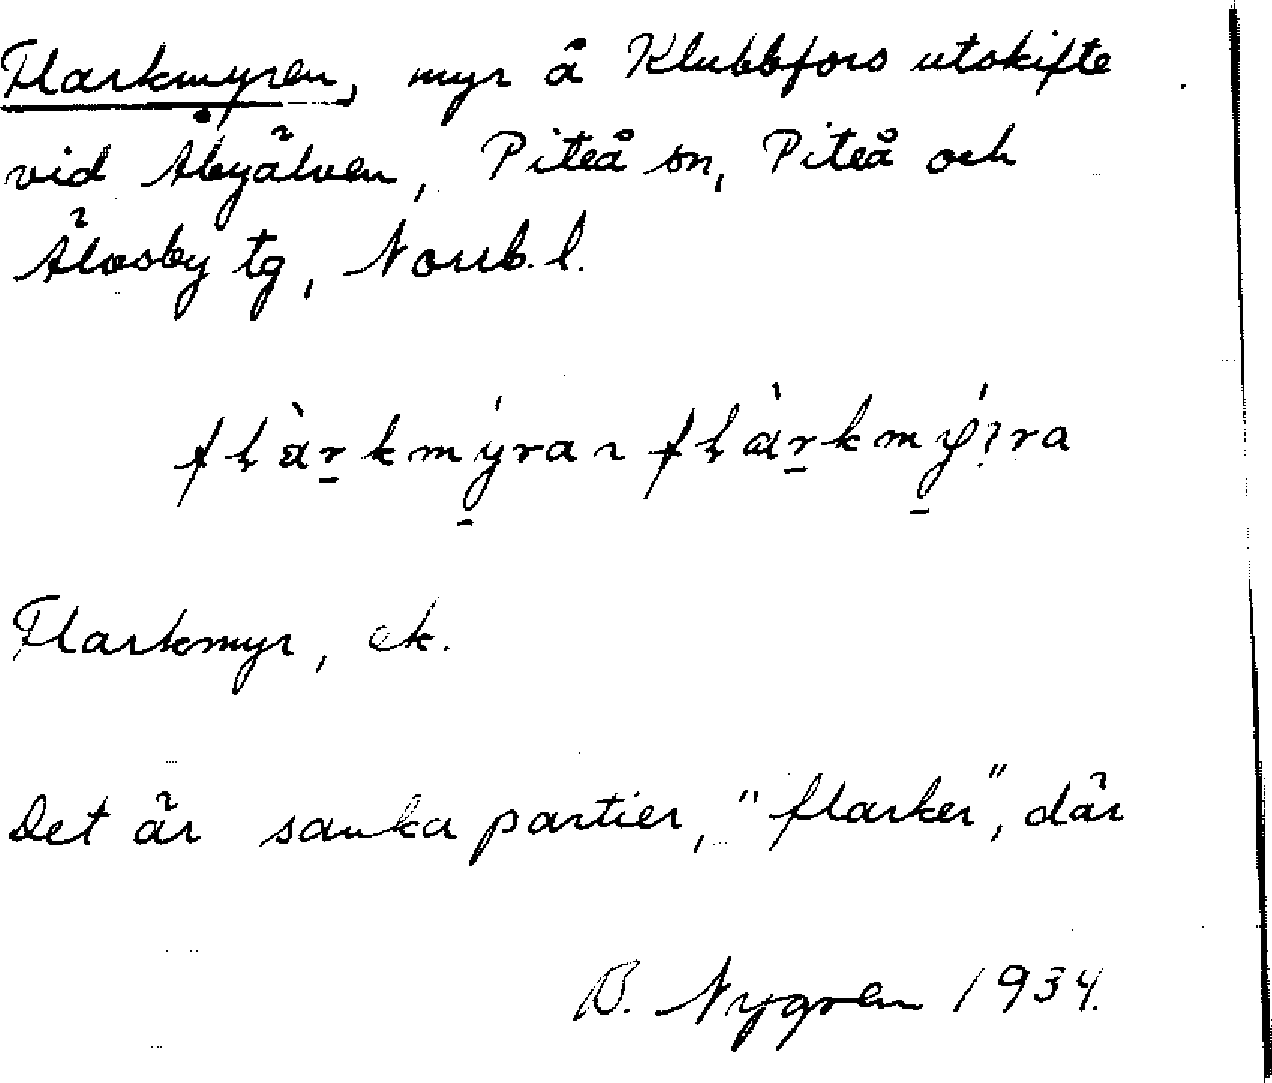 Flarkmyren, myr å Klubbfors utskifte
vid Åbyälven, Piteå sn, Piteå och
Älvsby tg, Norrb. l.
flàrkmýra ~ flàrkmý?ra
Flarkmyr, ek.
Det är sanka partier, "flarker", där
B. Nygren 1934.